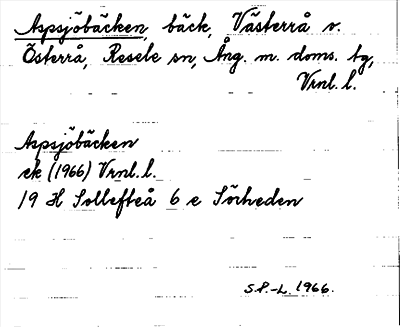 Aspsjöbäcken, bäck, Västerrå v.
Österrå, Resele sn, Ång. m. doms. tg,
Vrnl. l.
Aspsjöbäcken
ek (1966) Vrnl. l.
19 H Sollefteå 6 e Sörheden
S.P.-L. 1966.